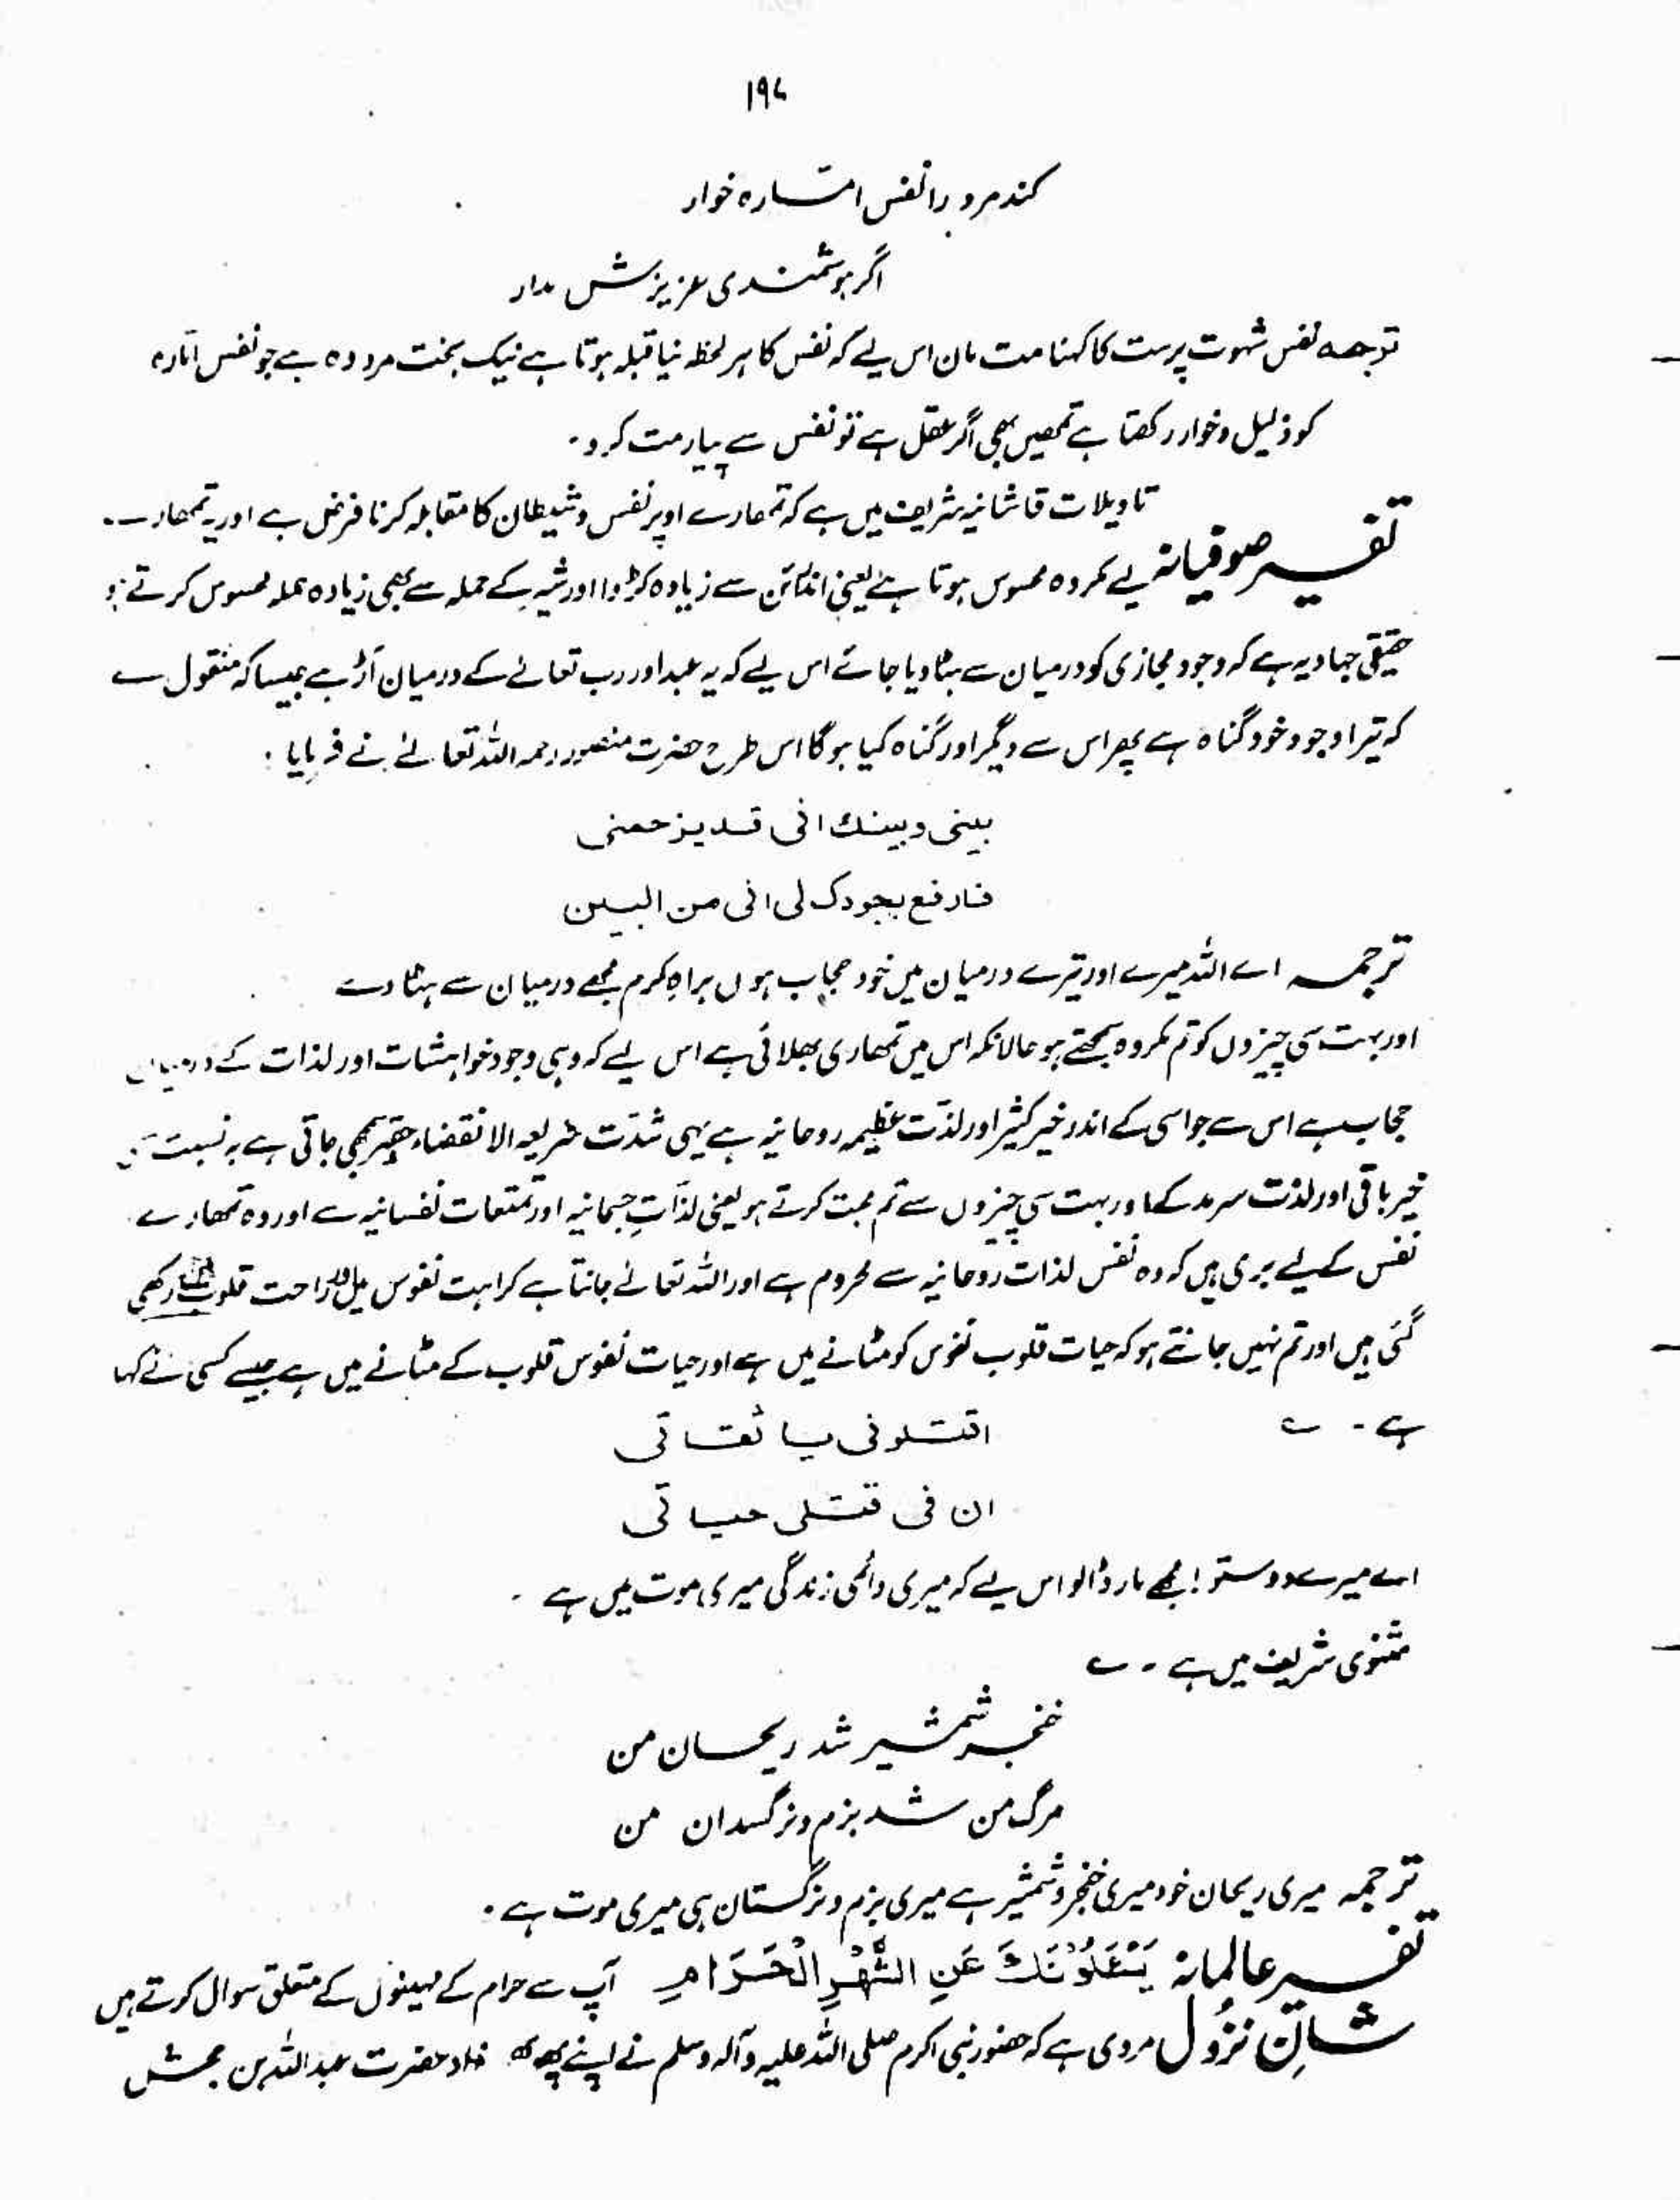 ۱۹۷
کند مرد را نفس امّارہ خوار
اگر ہوشمندی عزیزش مدار
ترجمہ نفس شہوت پرست کا کہنا مت مان اس لیے کہ نفس کا ہر لحظہ نیا قبلہ ہوتا ہے نیک بخت مرد وہ ہے جو نفس امّارہ
کو ذلیل و خوار رکھتا ہے تمھیں بھی اگر عقل ہے تو نفس سے پیار مت کرو۔
تاویلات قاشانیہ شریف میں ہے کہ تمھارے اوپر نفس و شیطان کا مقابلہ کرنا فرض ہے اور یہ تمھارے
تفسیر صوفیانہ لیے مکروہ محسوس ہوتا ہے یعنی اندرائن سے زیادہ کڑوا اور شیر کے حملہ سے بھی زیادہ حملہ محسوس کرتے ہو
حقیقی جہاد یہ ہے کہ وجود مجازی کو درمیان سے ہٹا دیا جائے اس لیے کہ یہ عبد اور رب تعالٰے کے درمیان آڑ ہے جیسا کہ منقول ہے
کہ تیرا وجود خود گناہ ہے پھر اس سے دیگر اور گناہ کیا ہوگا اس طرح حضرت منصور رحمہ اللہ تعالٰے نے فرمایا :
بینی وبینک انی قد یزحمنی
فارفع بجودک لی انی من البین
ترجمہ اے اللہ میرے اور تیرے درمیان میں خود حجاب ہوں براہِ کرم مجھے درمیان سے ہٹا دے
اور بہت سی چیزوں کو تم مکروہ سمجھتے ہو حالانکہ اس میں تمھاری بھلائی ہے اس لیے کہ وہی وجود خواہشات اور لذات کے درمیان
حجاب ہے اس سے جو اسی کے اندر خیر کثیر اور لذّت عظیمہ روحانیہ ہے یہی شدّت سریعہ الانقضاء حقیر سمجھی جاتی ہے بہ نسبت
خیر باقی اور لذت سرمد کے اور بہت سی چیزوں سے تم محبت کرتے ہو یعنی لذّاتِ جسمانیہ اور تمتعات نفسانیہ سے اور وہ تمھارے
نفس کے لیے بری ہیں کہ وہ نفس لذات روحانیہ سے محروم ہے اور اللہ تعالٰے جانتا ہے کراہت نفوس میں اور راحت قلوب رکھی
گئی ہیں اور تم نہیں جانتے ہو کہ حیات قلوب نفوس کو مٹانے میں ہے اور حیات نفوس قلوب کے مٹانے میں ہے جیسے کسی نے کہا
ہے ۔ ؎
اقتلونی یا ثقاتی
ان فی قتلی حیاتی
اے میرے دوستو! مجھے مار ڈالو اس لیے کہ میری دائمی زندگی میری موت میں ہے ۔
مثنوی شریف میں ہے ۔ ؎
خنجر شمشیر شد ریحان من
مرگ من شد بزم و نرگسدان من
ترجمہ میری ریحان خود میری خنجر و شمشیر ہے میری بزم و نرگستان ہی میری موت ہے ۔
تفسیر عالمانہ یَسْئَلُوْنَکَ عَنِ الشَّھْرِ الْحَرَامِ آپ سے حرام کے مہینوں کے متعلق سوال کرتے ہیں
شانِ نزُول مروی ہے کہ حضور نبی اکرم صلی اللہ علیہ وآلہ وسلم نے اپنے پھوپھی زاد حضرت عبد اللہ بن جحش